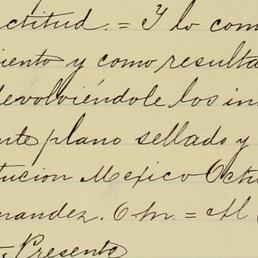 actitud. = Y lo com
iento y como resulta
devolviéndole los in
nte plano sellado y
tucion Mexico Octu
nandez. O m. = Al C
Presente